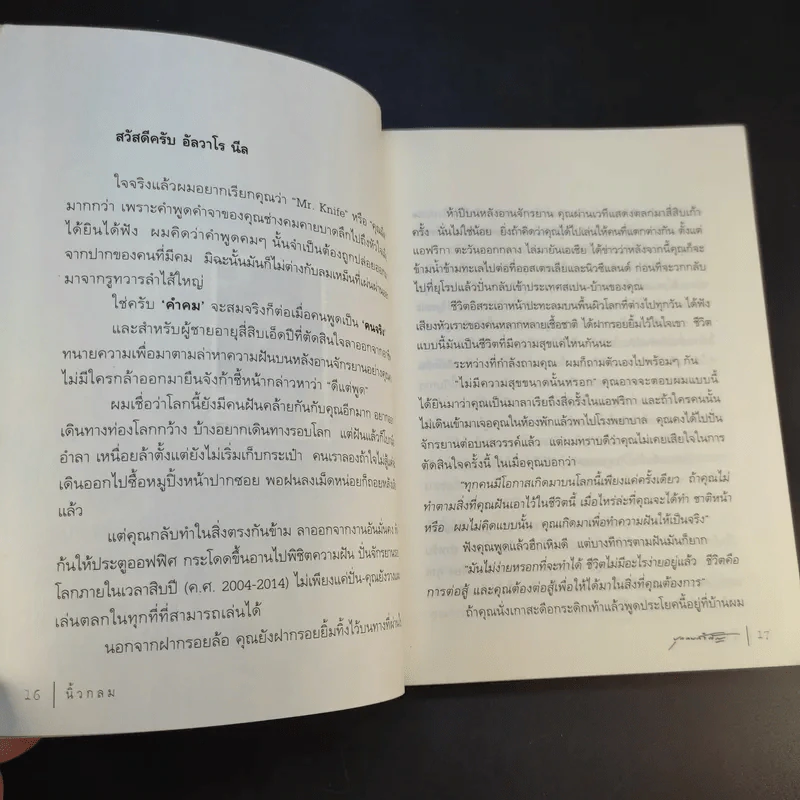 สวัสดีครับ อัลวาโร นีล
ใจจริงแล้วผมอยากเรียกคุณว่า "Mr. Knife" หรือ
มากกว่า เพราะคำพูดคำจาของคุณช่างคมคายบาดลึกไปถึงหัวใจ
ได้ยินได้ฟัง ผมคิดว่าคำพูดคมๆ นั้นจำเป็นต้องถูกปล่อยออก
จากปากของคนที่มีคม มิฉะนั้นมันก็ไม่ต่างกับลมเหม็นที่แผ่น
มาจากรูทวารลำไส้ใหญ่
ใช่ครับ 'คำคม' จะสมจริงก็ต่อเมื่อคนพูดเป็น 'คนจริง'
และสำหรับผู้ชายอายุสี่สิบเอ็ดปีที่ตัดสินใจลาออกจาก
ทนายความเพื่อมาตามล่าหาความฝันบนหลังอานจักรยานอย่างคุณ
ไม่มีใครกล้าออกมายืนจังก้าชี้หน้ากล่าวหาว่า "ดีแต่พูด"
ผมเชื่อว่าโลกนี้ยังมีคนฝันคล้ายกันกับคุณอีกมาก
เดินทางท่องโลกกว้าง บ้างอยากเดินทางรอบโลก แต่ฝันแล้วก็
อำลา เหนื่อยล้าตั้งแต่ยังไม่เริ่มเก็บกระเป๋า คนเราลองถ้าใจไม่สู้
เดินออกไปซื้อหมูปิ้งหน้าปากซอย พอฝนลงเม็ดหน่อยก็ถอยหลัง
แล้ว
แต่คุณกลับทำในสิ่งตรงกันข้าม ลาออกจากงานอันมั่นคง
ก้นให้ประตูออฟฟิศ กระโดดขึ้นอานไปพิชิตความฝัน ปั่นจักรยาน
โลกภายในเวลาสิบปี (ค.ศ. 2004-2014) ไม่เพียงแค่ปั่น-คุณยัง
เล่นตลกในทุกที่ที่สามารถเล่นได้
นอกจากฝากรอยล้อ คุณยังฝากรอยยิ้มทิ้งไว้บนทางที่ผ่าน
16 | นิ้วกลม
ห้าปีบนหลังอานจักรยาน คุณผ่านเวทีแสดงตลกมาสี่สิบเก้า
ครั้ง นั่นไม่ใช่น้อย ยิ่งถ้าคิดว่าคุณได้ไปเล่นให้คนที่แตกต่างกัน ตั้งแต่
แอฟริกา ตะวันออกกลาง ไล่มายันเอเชีย ได้ข่าวว่าหลังจากนี้คุณก็จะ
ข้ามน้ำข้ามทะเลไปต่อที่ออสเตรเลียและนิวซีแลนด์ ก่อนที่จะวกกลับ
ไปที่ยุโรปแล้วปั่นกลับเข้าประเทศสเปน-บ้านของคุณ
ชีวิตอิสระเอาหน้าปะทะลมบนพื้นผิวโลกที่ต่างไปทุกวัน ได้ฟัง
เสียงหัวเราะของคนหลากหลายเชื้อชาติ ได้ฝากรอยยิ้มไว้ในใจเขา ชีวิต
แบบนี้มันเป็นชีวิตที่มีความสุขแค่ไหนกันนะ
ระหว่างที่กำลังถามคุณ ผมก็ถามตัวเองไปพร้อมๆ กัน
"ไม่มีความสุขขนาดนั้นหรอก" คุณอาจจะตอบผมแบบนี้
ได้ยินมาว่าคุณเป็นมาลาเรียถึงสี่ครั้งในแอฟริกา และถ้าใครคนนั้น
ไม่เดินเข้ามาเจอคุณในห้องพักแล้วพาไปโรงพยาบาล คุณคงได้ไปปั่น
จักรยานต่อบนสวรรค์แล้ว แต่ผมทราบดีว่าคุณไม่เคยเสียใจในการ
ตัดสินใจครั้งนี้ ในเมื่อคุณบอกว่า
"ทุกคนมีโอกาสเกิดมาบนโลกนี้เพียงแค่ครั้งเดียว ถ้าคุณไม่
ทำตามสิ่งที่คุณฝันเอาไว้ในชีวิตนี้ เมื่อไหร่ล่ะที่คุณจะได้ทำ ชาติหน้า
หรือ ผมไม่คิดแบบนั้น คุณเกิดมาเพื่อทำความฝันให้เป็นจริง"
ฟังคุณพูดแล้วฮึกเหิมดี แต่บางทีการตามฝันมันก็ยาก
"มันไม่ง่ายหรอกที่จะทำได้ ชีวิตไม่มีอะไรง่ายอยู่แล้ว ชีวิตคือ
การต่อสู้ และคุณต้องต่อสู้เพื่อให้ได้มาในสิ่งที่คุณต้องการ"
ถ้าคุณนั่งเกาสะดือกระดิกเท้าแล้วพูดประโยคนี้อยู่ที่บ้านผม
| 17